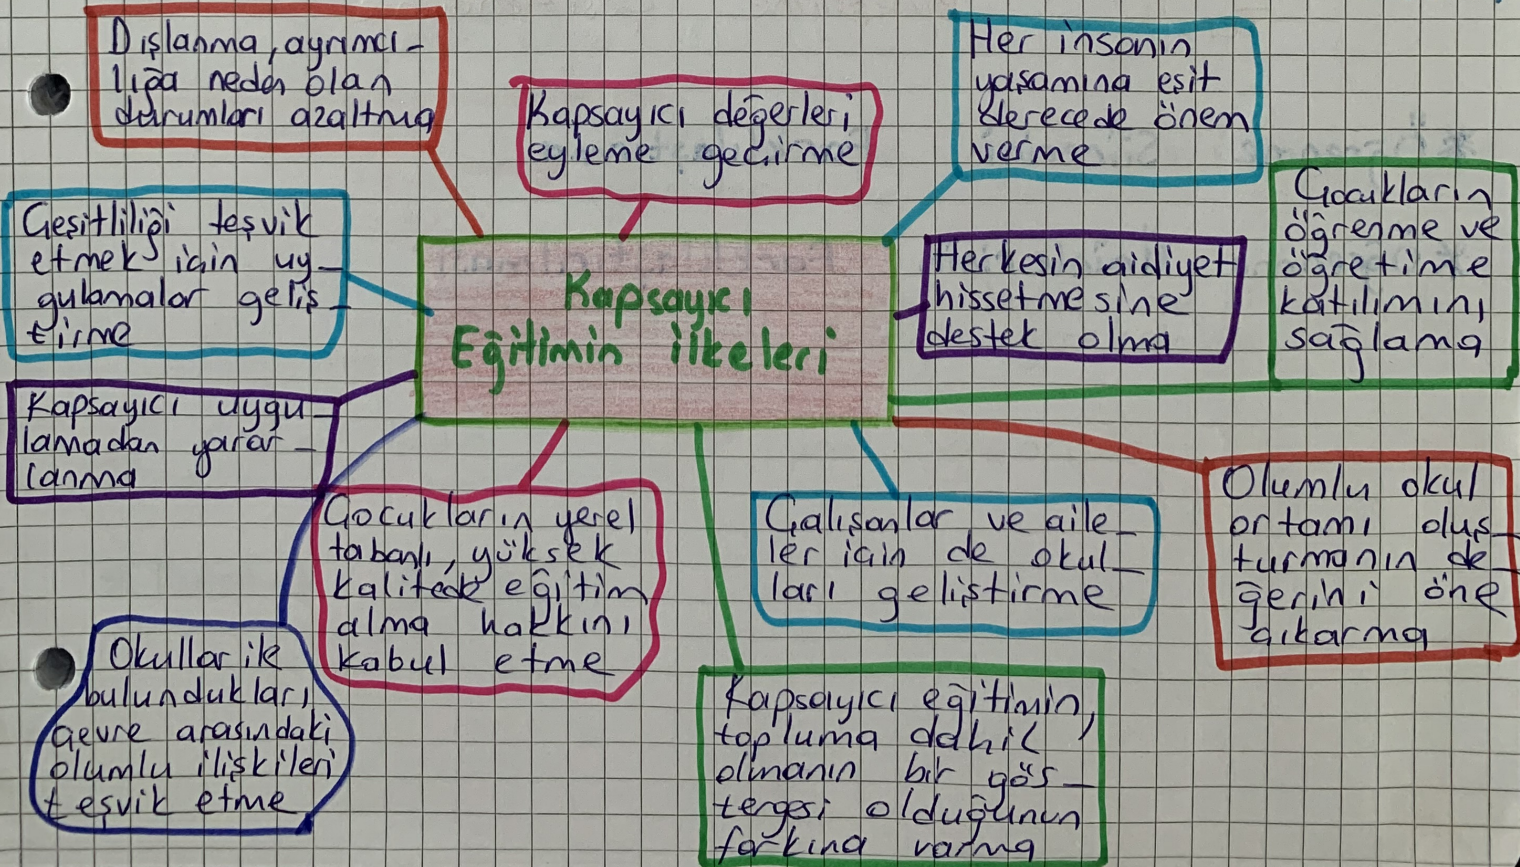 Dışlanma, ayrımcı-
lığa neden olan
durumları azaltma
Kapsayıcı değerleri
eyleme geçirme
Her insanın
yaşamına eşit
derecede önem
verme
Çeşitliliği teşvik
etmek için uy-
gulamalar geliş-
tirme
Kapsayıcı
Eğitimin ilkeleri
Herkesin aidiyet
hissetmesine
destek olma
Çocukların
öğrenme ve
öğretime
katılımını
sağlama
Kapsayıcı uygu-
lamadan yarar-
lanma
Çocukların yerel
tabanlı, yüksek
kalitede eğitim
alma hakkını
kabul etme
Çalışanlar ve aile-
ler için de okul-
ları geliştirme
Olumlu okul
ortamı oluş-
turmanın de-
ğerini öne
çıkarma
Okullar ile
bulundukları
çevre arasındaki
olumlu ilişkileri
teşvik etme
Kapsayıcı eğitimin,
topluma dahil
olmanın bir gös-
tergesi olduğunun
farkına varma